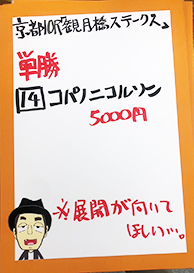 京都10R「観月橋ステークス」
単勝
14 コパノニコルソン
5000円
※展開が向いて
ほしい…。